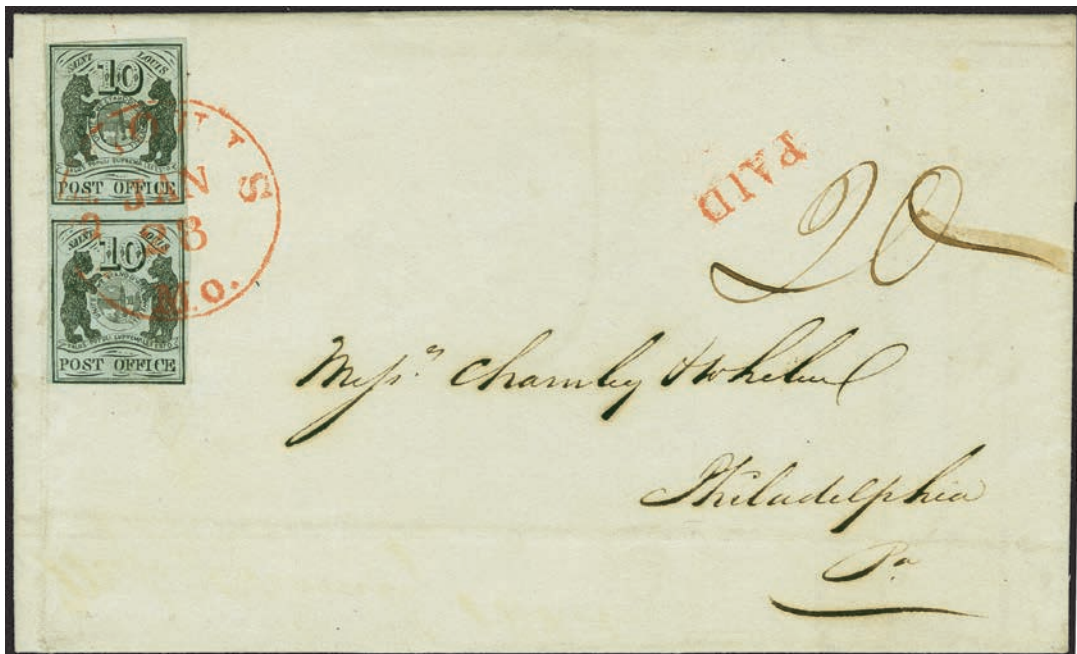 SAINT LOUIS
10
POST OFFICE
SAINT LOUIS
10
POST OFFICE
LOUIS
JAN
28
Mo.
PAID
20
Mess.rs Charnley &
Philadelphia
Pa